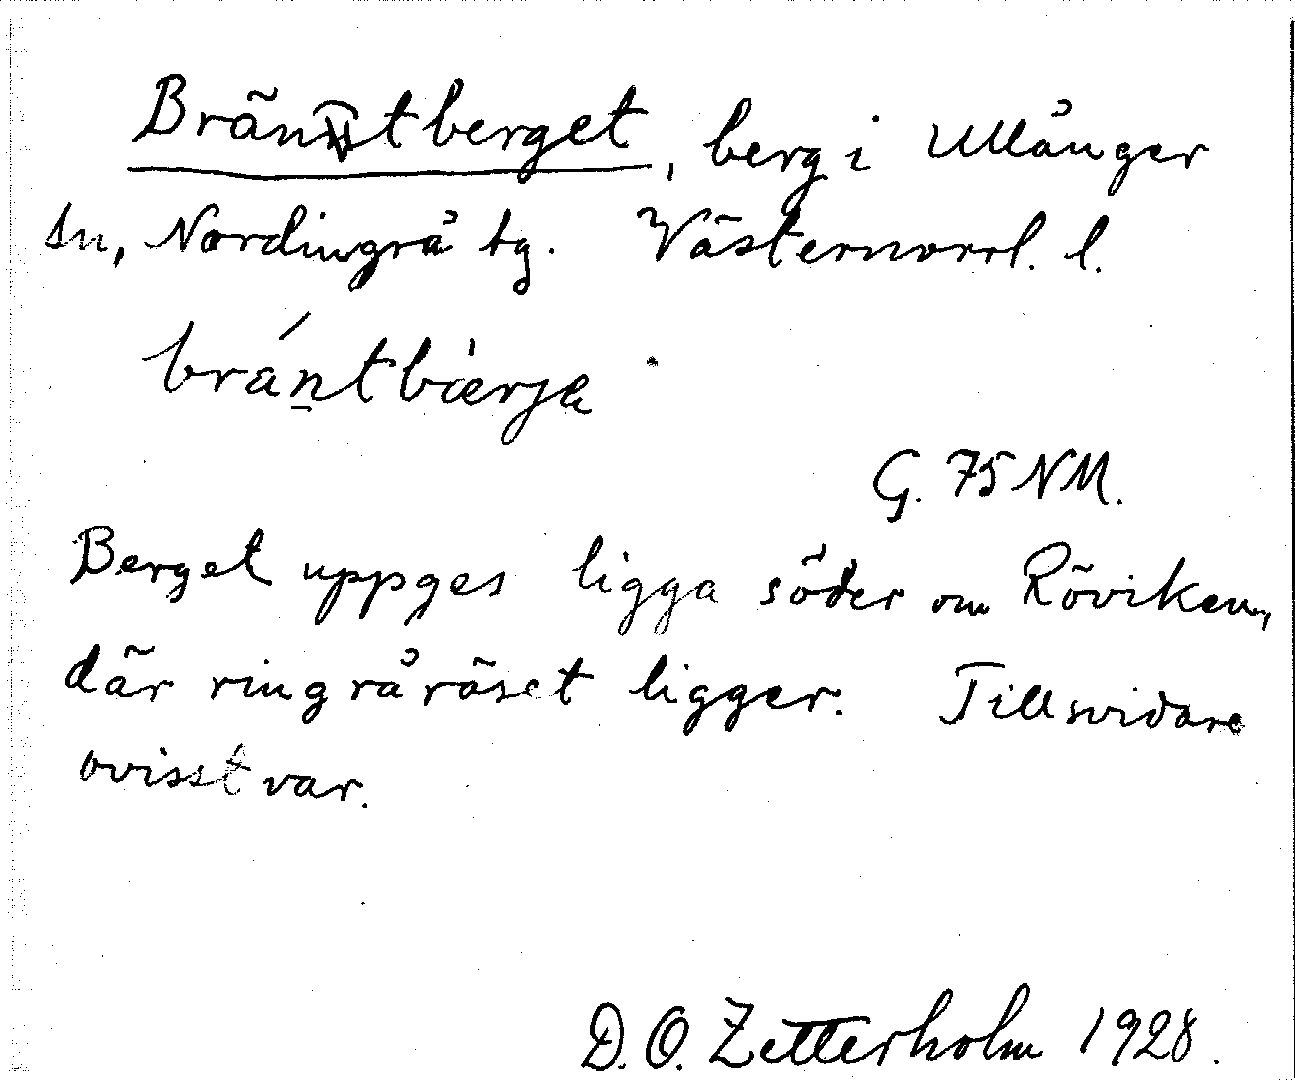 Bränntberget, berg i Ullånger
sn, Nordingrå tg. Västernorrl. l.
bránt bàrja
G. 75 NM.
Berget uppges ligga söder om Röviken,
där ringråröset ligger. Tillsvidare
ovisst var.
D. O. Zetterholm 1928.